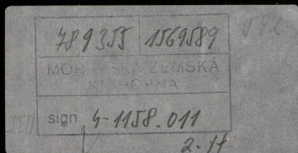 789355 1569589
MORAVSKÁ ZEMSKÁ
KNIHOVNA
sign. 4-1158.011
2. H